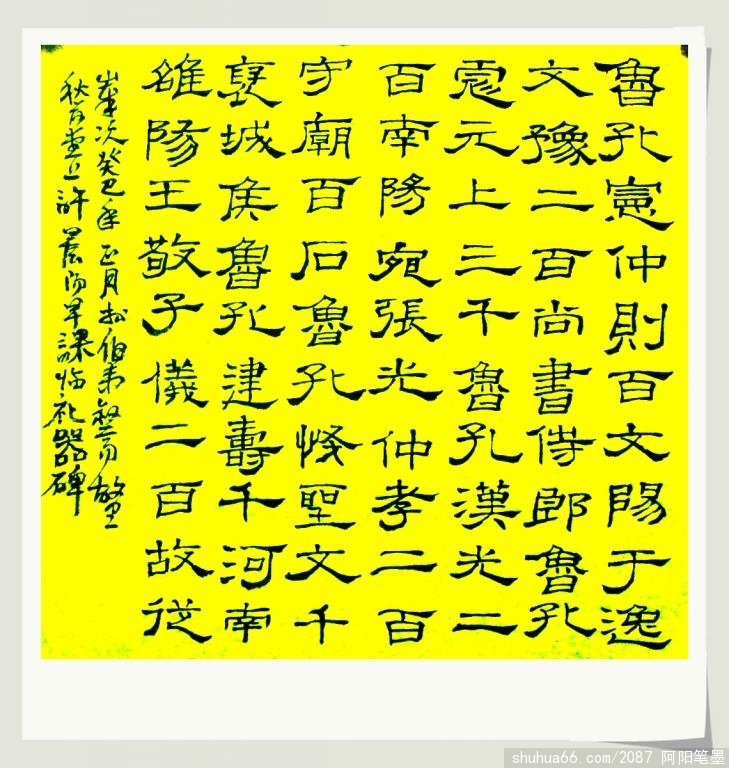 魯孔憲仲則百文陽于逸
文豫二百尚書侍郎魯孔
彪元上三千魯孔漢光二
百南陽宛張光仲孝二百
守廟百石魯孔恢聖文千
襃城侯魯孔建壽千河南
雒陽王敬子儀二百故從
歲次癸巳年正月於伯
許早課临礼器碑
shuhua66.com/2087 阿阳笔墨